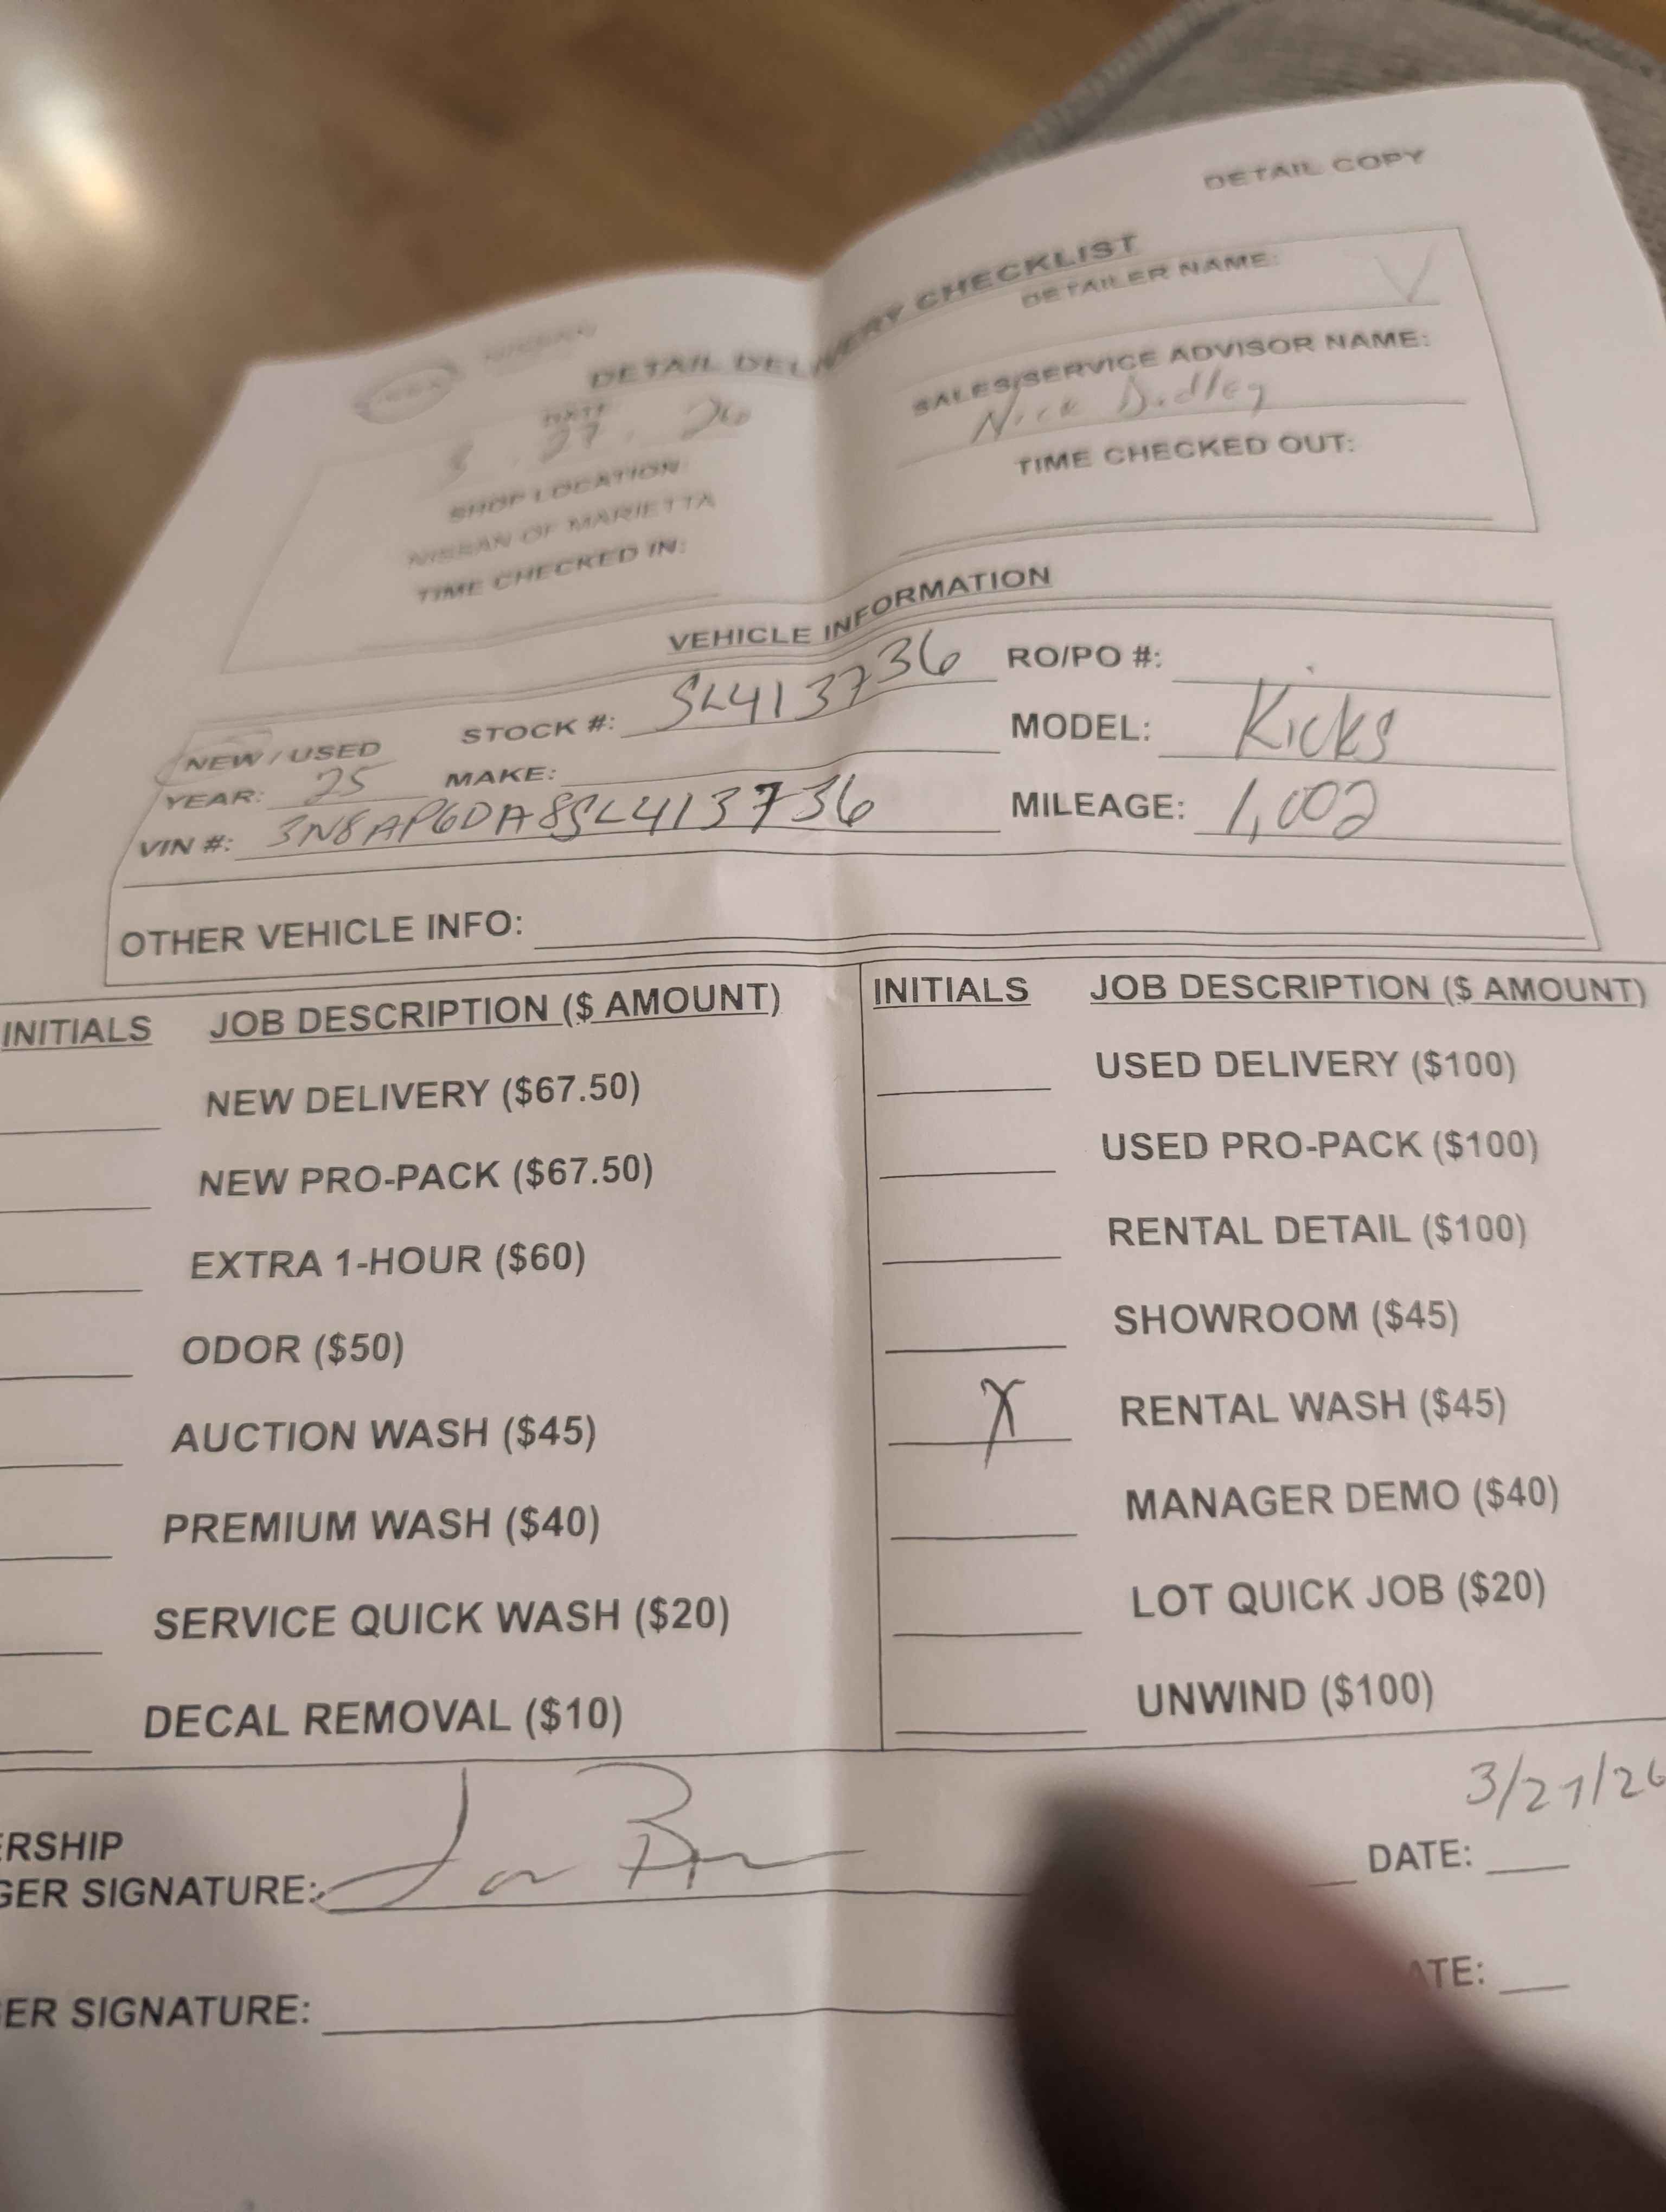 DETAIL COPY
NISSAN
DETAIL DELIVERY CHECKLIST
DATE
3 . 27 . 26
SHOP LOCATION:
NISSAN OF MARIETTA
TIME CHECKED IN:
DETAILER NAME:
SALES/SERVICE ADVISOR NAME:
Nick Dudley
TIME CHECKED OUT:
VEHICLE INFORMATION
NEW / USED STOCK #: SL413736 RO/PO #:
YEAR: 25 MAKE: MODEL: Kicks
VIN #: 3N8AP6DA8SL413736 MILEAGE: 1,002
OTHER VEHICLE INFO:
INITIALS JOB DESCRIPTION ($ AMOUNT) INITIALS JOB DESCRIPTION ($ AMOUNT)
NEW DELIVERY ($67.50) USED DELIVERY ($100)
NEW PRO-PACK ($67.50) USED PRO-PACK ($100)
EXTRA 1-HOUR ($60) RENTAL DETAIL ($100)
ODOR ($50) SHOWROOM ($45)
AUCTION WASH ($45) X RENTAL WASH ($45)
PREMIUM WASH ($40) MANAGER DEMO ($40)
SERVICE QUICK WASH ($20) LOT QUICK JOB ($20)
DECAL REMOVAL ($10) UNWIND ($100)
3/27/26
ERSHIP
GER SIGNATURE: DATE:
ER SIGNATURE: ATE: